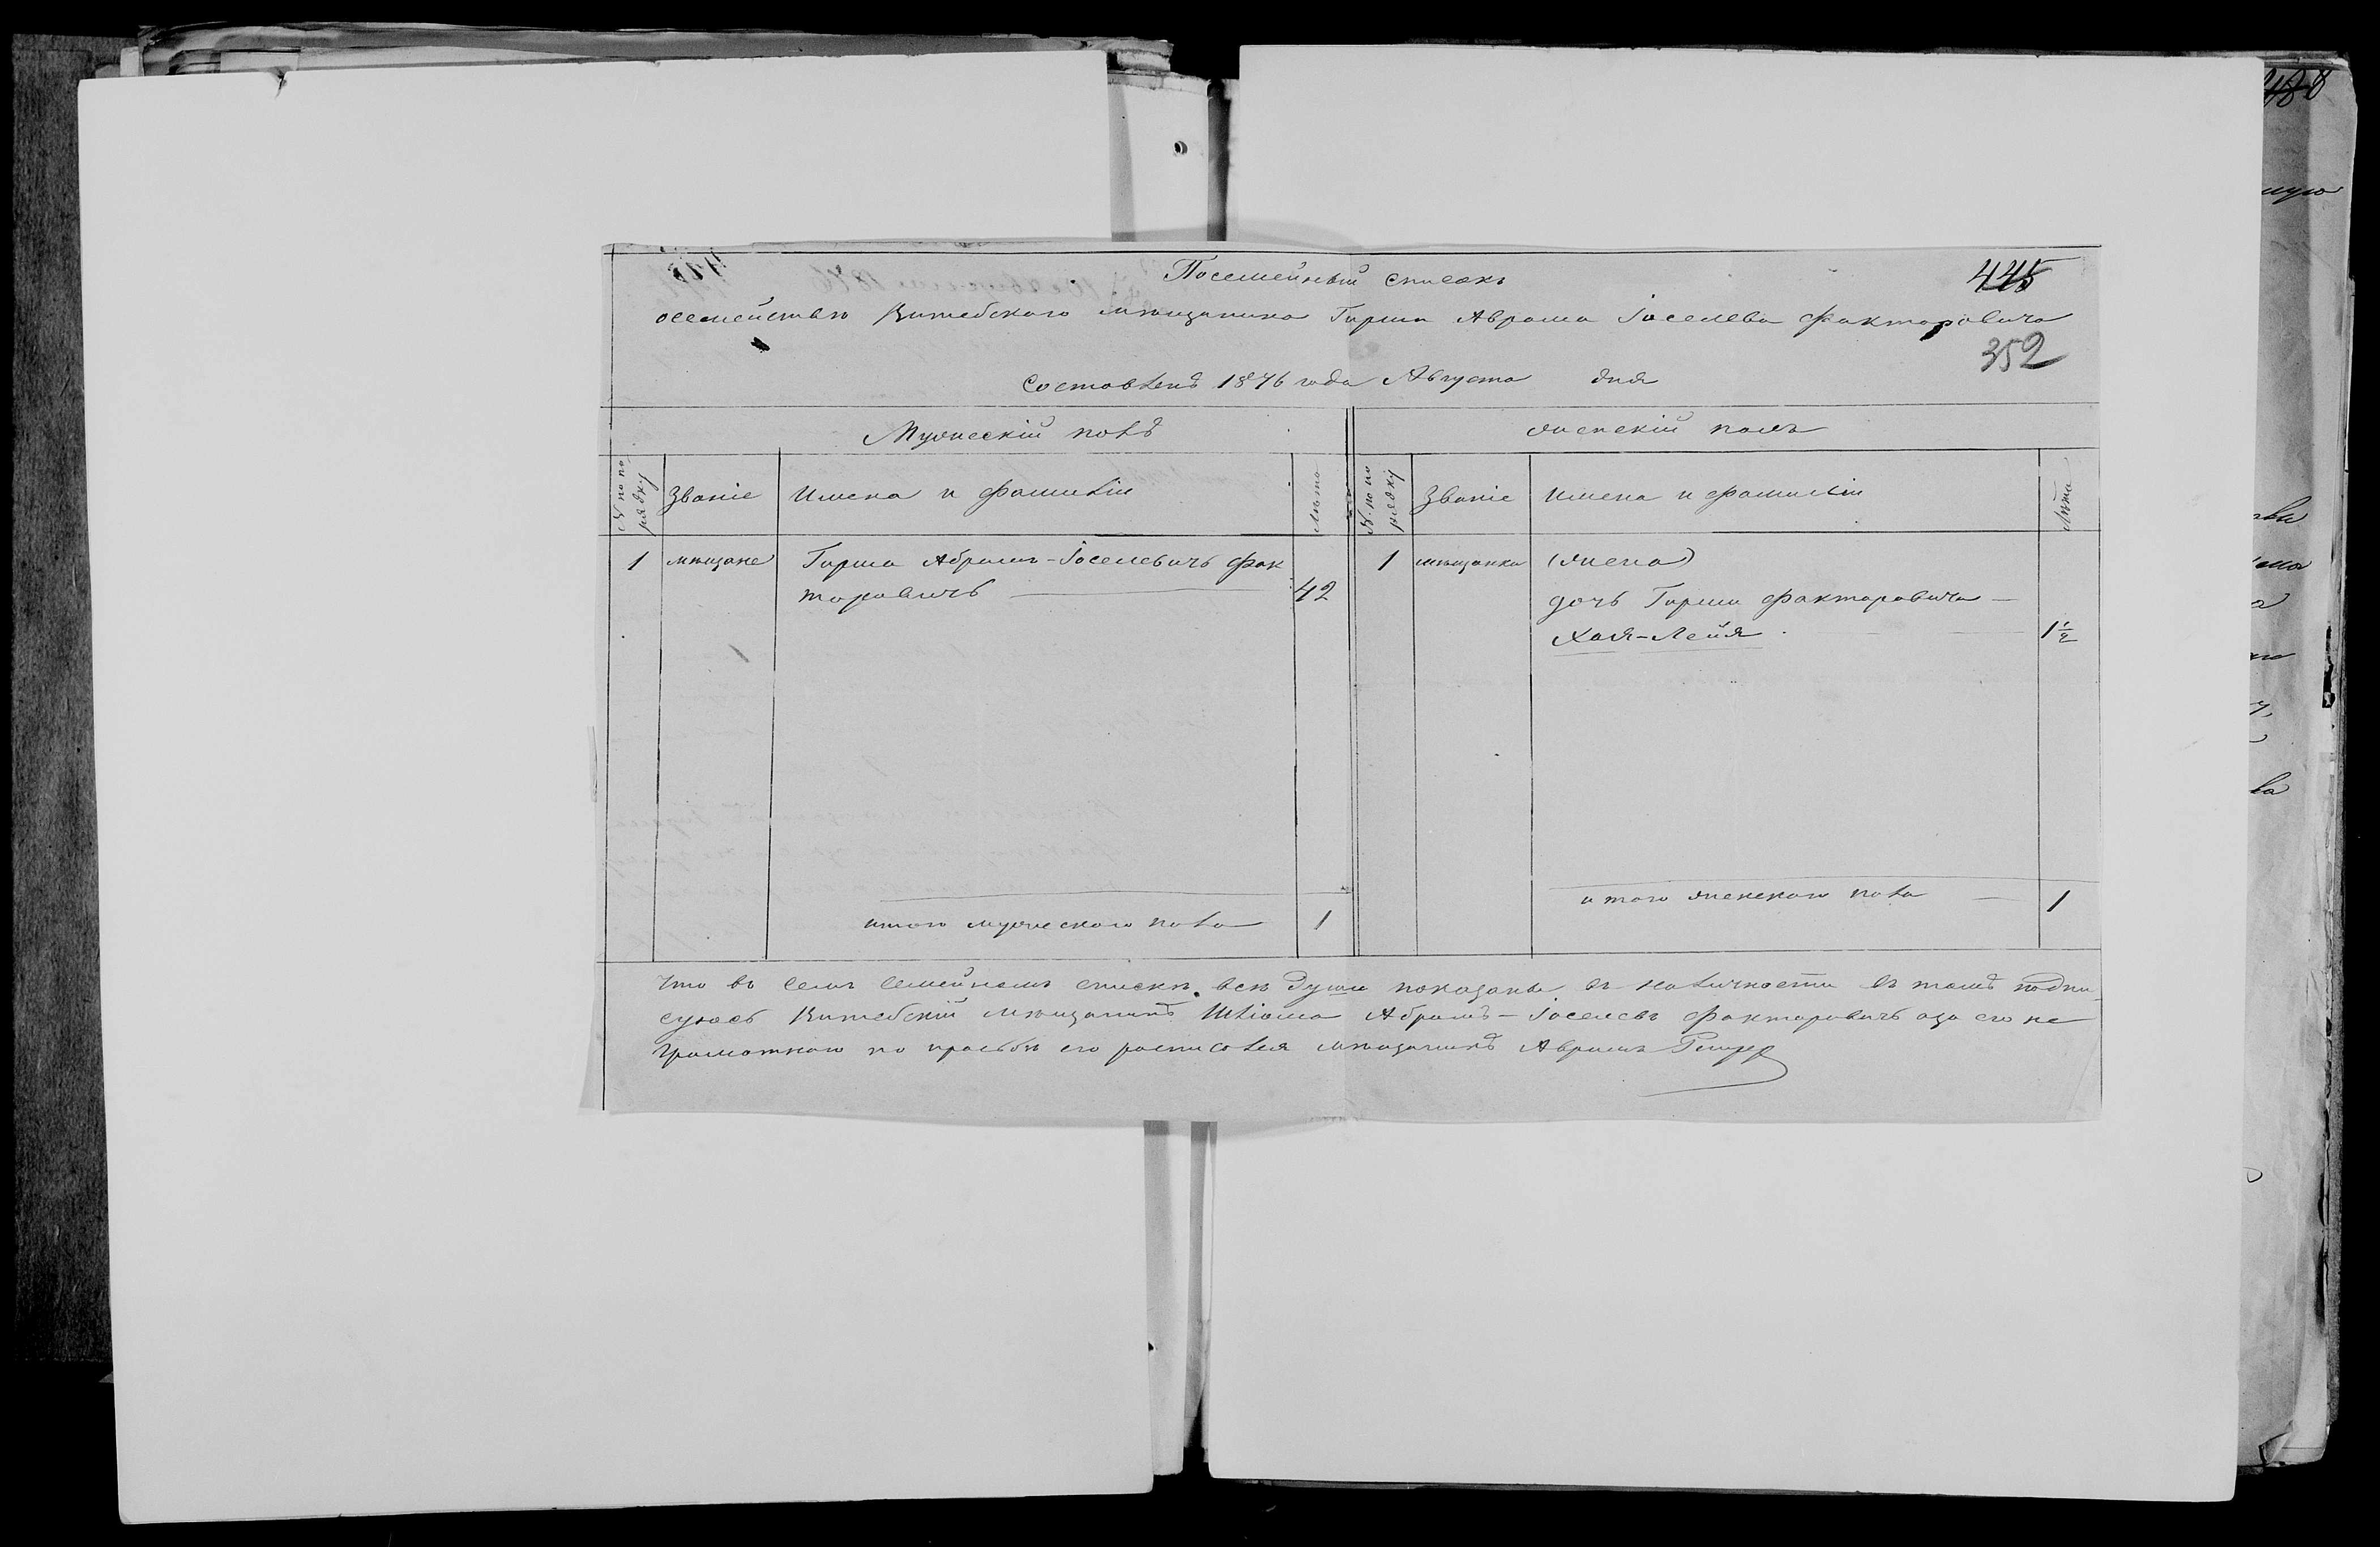 Посемейный списокъ
445
о семействѣ Витебскаго мѣщанина Гирши Аврама Іоселева Факторовича
352
Составленъ 1876 года Августа дня
Мужескій полъ
Женскій полъ
№ по по
рядку
Званіе
Имена и фамиліи
Лѣта
№ по по
рядку
Званіе
Имена и фамиліи
Лѣта
1 мѣщане Гирша Абрамъ-Іоселевичъ Фак
торовичъ 42
1 мѣщанка (жена)
дочь Гирши Факторовича
Хая-Лейя 1½
итого мужескаго пола 1
итого женскаго пола 1
Что въ семъ семейномъ спискѣ всѣ души показаны въ наличности въ томъ подпи-
суюсь Витебскій мѣщанинъ Шліома Абрамъ-Іоселевъ Факторовичъ а за его не
грамотнаго по прозьбѣ его росписался мѣщанинъ Аврамъ